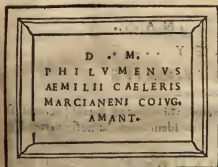 D . M.
PHILVMENVS
AEMILII CAELERIS
MARCIANENI COIVG.
AMANT.